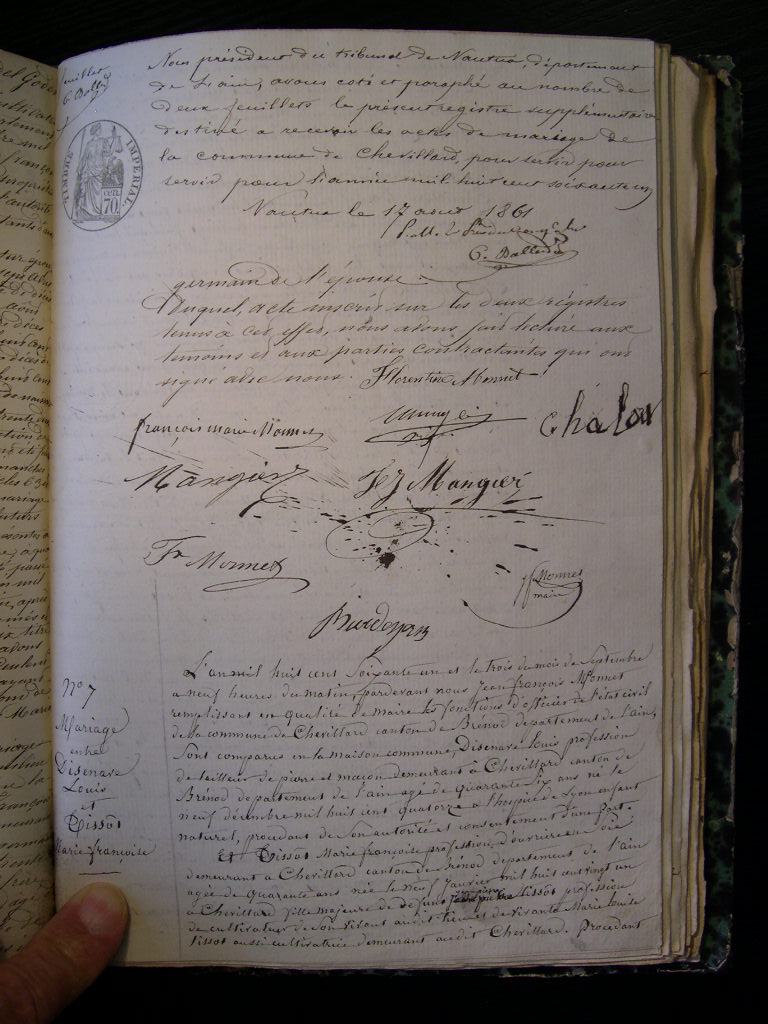 feuillet
Nous président du tribunal de Nantua, département
de l'ain, avons coté et paraphé au nombre de
deux feuillets le présent registre supplémentaire
destiné a recevoir les actes de mariage de
la commune de Chevillard, pour servir pour
servir pour l'année mil huit cent soixante un
TIMBRE IMPÉRIAL
CEN. 70
Nantua le 17 aout 1861
germain de l'épouse.
Duquel, acte inscrit sur les deux régistres
tenus à cet effet, nous avons fait lecture aux
temoins et aux parties contractantes qui ont
signé avec nous. Florentine Monnet
françois marie Monnet
chalon
Mangier Fcs Mangier
Fs Monnet
Monnet
maire
N° 7
Mariage
entre
Disenare
Louis
et
Tissot
Marie françoise
L'an mil huit cent soixante un et le trois du mois de Septembre
a neuf heures du matin, pardevant nous Jean françois Monnet
remplissant en qualité de maire les fonctions d'officier de l'état civil
de la commune de Chevillard canton de Brénod departement de l'ain,
Sont comparus en la maison commune, Disenare Louis profession
de tailleur de pierre et maçon demeurant à Chevillard canton de
Brénod departement de l'ain agé de quarante six ans né le
neuf décembre mil huit cent quatorze a l'hospice de Lyon enfant
naturel, procedant de son autorité et consentement d'une part.
Et Tissot Marie françoise profession d'ouvrière en soie
demeurant a Chevillard canton de Brénod departement de l'ain
agée de quarante ans née le neuf Janvier mil huit cent vingt un
a Chevillard fille majeure de defunt Tissot profession
de cultivateur de son vivant audit lieu et de vivante Marie Louise
Tissot aussi cultivatrice demeurant audit Chevillard. Procedant